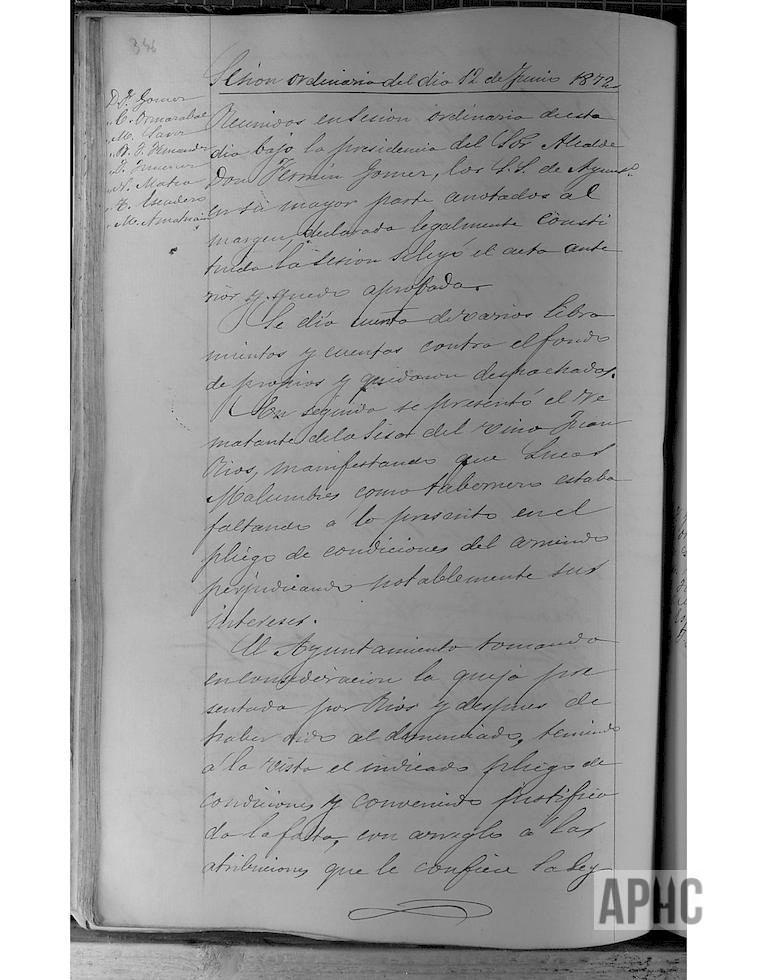 346
Sesion ordinaria del dia 12 de Junio 1872
D. F. Gomez
" C. Ormazabal
" M. Sanz
" B. F. Fernandez
" J. Jimenez
" N. Mateo
" E. Escudero
" M.
Reunidos en sesion ordinaria de este
dia bajo la presidencia del Sor Alcalde
Don Fermin Gomez, los S.S. de Ayunto
en su mayor parte anotados al
margen, declarada legalmente consti
tuida la sesion se leyó el acta ante
rior y quedo aprobada.
Se dio cuenta de varios libra
mientos y cuentas contra el fondo
de propios y quedaron despachados.
En seguida se presentó el re
matante de la sisa del vino Juan
Rios, manifestando que Lucas
Malumbres como tabernero estaba
faltando a lo prescrito en el
pliego de condiciones del arriendo
perjudicando notablemente sus
intereses.
El Ayuntamiento tomando
en consideracion la queja pre
sentada por Rios y despues de
haber oido al denunciado, teniendo
a la vista el indicado pliego de
condiciones y convenido justifica
da la falta, con arreglo a las
atribuciones que le confiere la ley
APHC